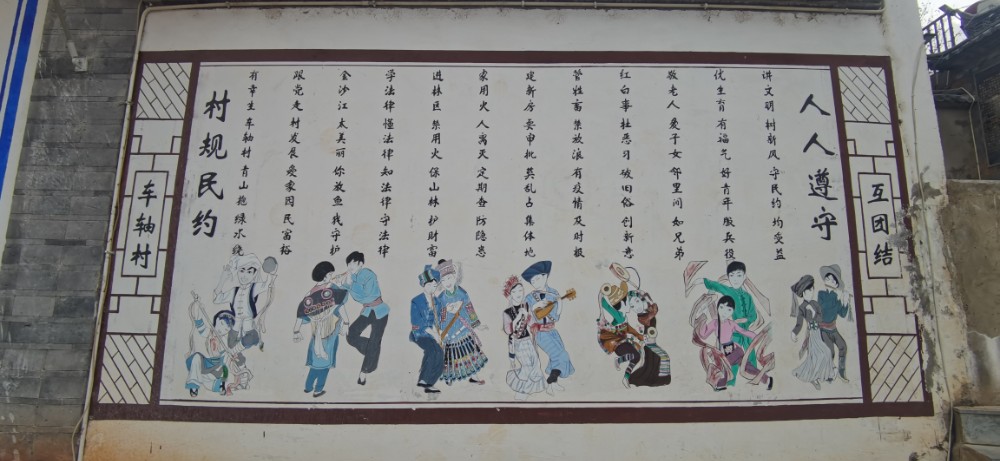 车轴村
村规民约
有幸生车轴村青山抱绿水绕
跟党走村发展爱家园民富裕
金沙江太美丽你放鱼我守护
学法律懂法律知法律守法律
进林区禁用火保山林护财富
家用火人离灭定期查防隐患
建新房要申批莫乱占集体地
管牲畜禁放浪有疫情及时报
红白事杜恶习破旧俗创新意
敬老人爱子女邻里间如兄弟
优生育有福气好青年服兵役
讲文明树新风守民约均受益
人人遵守
互团结